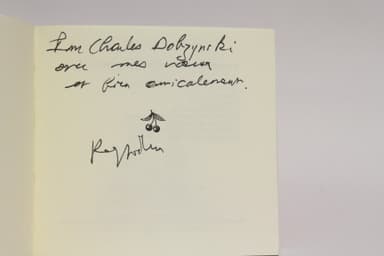 Pour Charles Dobzynski
avec mes vœux
et bien amicalement.